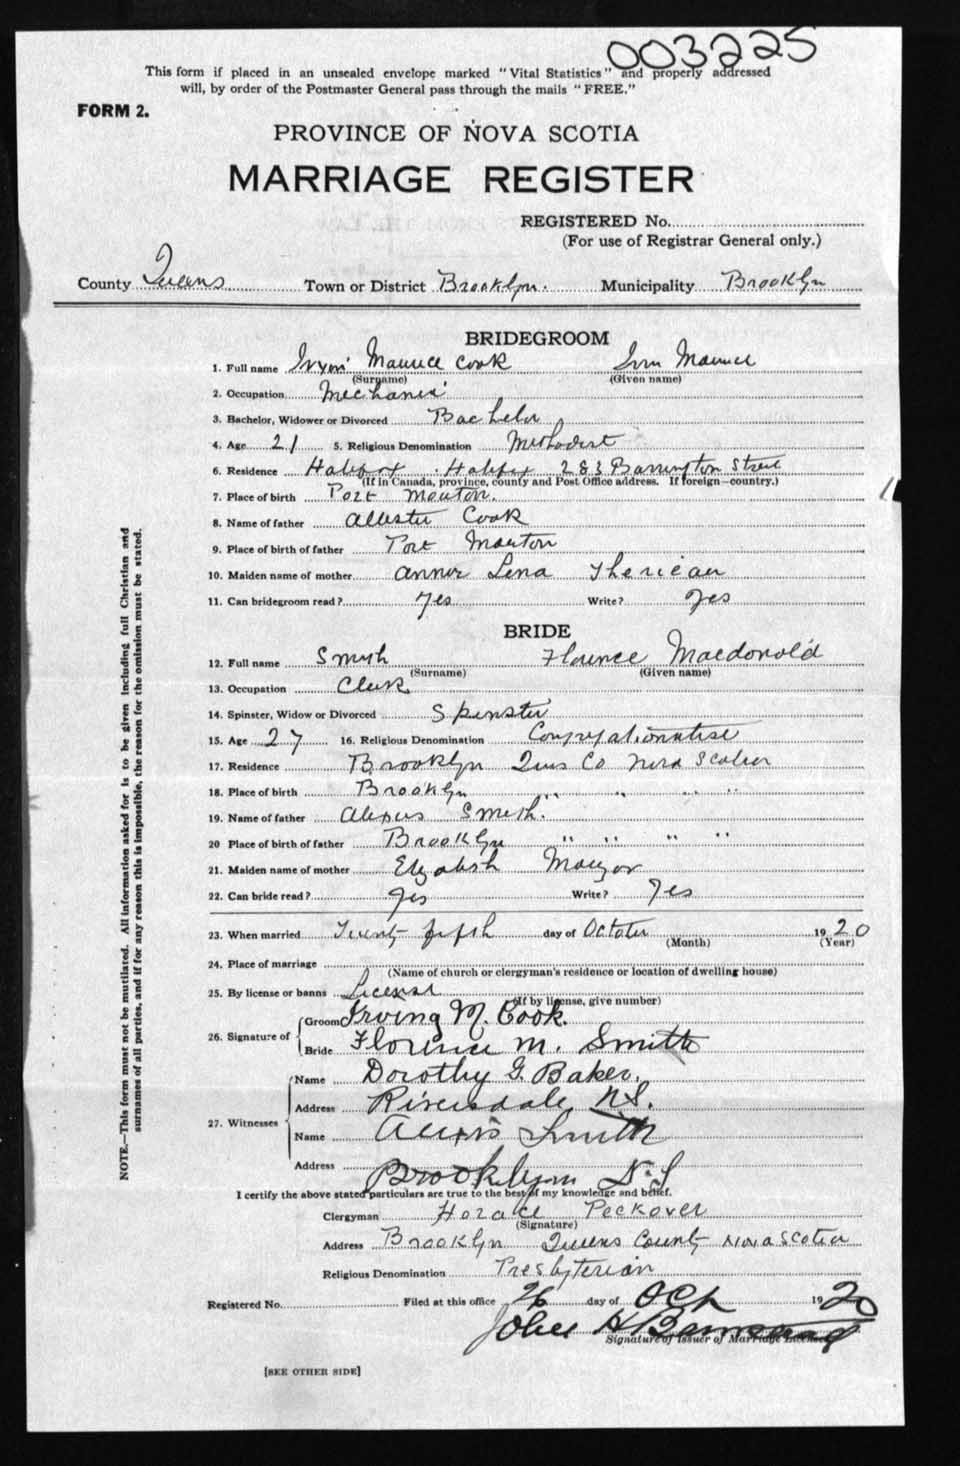 003225
This form if placed in an unsealed envelope marked "Vital Statistics" and properly addressed
will, by order of the Postmaster General pass through the mails "FREE."
FORM 2.
PROVINCE OF NOVA SCOTIA
MARRIAGE REGISTER
REGISTERED No.
(For use of Registrar General only.)
County Queens Town or District Brooklyn. Municipality Brooklyn
BRIDEGROOM
1. Full name Maurice Cook Maurice
(Surname) (Given name)
2. Occupation Mechanic
3. Bachelor, Widower or Divorced Bachelor
4. Age 21 5. Religious Denomination Methodist
6. Residence Halifax Halifax 283 Barrington Street
(If in Canada, province, county and Post Office address. If foreign—country.)
7. Place of birth Port Mouton.
8. Name of father Allister Cook
9. Place of birth of father Port Mouton
10. Maiden name of mother Lena
11. Can bridegroom read? Yes Write? Yes
BRIDE
12. Full name Smyth Florence Macdonald
(Surname) (Given name)
13. Occupation Clerk
14. Spinster, Widow or Divorced Spinster
15. Age 27 16. Religious Denomination
17. Residence Brooklyn Co Nova Scotia
18. Place of birth Brooklyn " " " "
19. Name of father Smith.
20 Place of birth of father Brooklyn " " " "
21. Maiden name of mother
22. Can bride read? Yes Write? Yes
23. When married Twenty fifth day of October 1920
(Month) (Year)
24. Place of marriage
(Name of church or clergyman's residence or location of dwelling house)
25. By license or banns License
(If by license, give number)
26. Signature of Groom Irving M. Cook.
Bride Florence M. Smith
27. Witnesses Name Dorothy G. Baker.
Address Riversdale N.S.
Name Alexis Smith
Address Brooklyn N.S
I certify the above stated particulars are true to the best of my knowledge and belief.
Clergyman Horace Peckover
(Signature)
Address Brooklyn Queens County Nova Scotia
Religious Denomination Presbyterian
Registered No. Filed at this office 26 day of Oct 1920
John H
Signature of Issuer of Marriage Licenses
[SEE OTHER SIDE]
NOTE.—This form must not be mutilated. All information asked for is to be given including full Christian and
surnames of all parties, and if for any reason this is impossible, the reason for the omission must be stated.